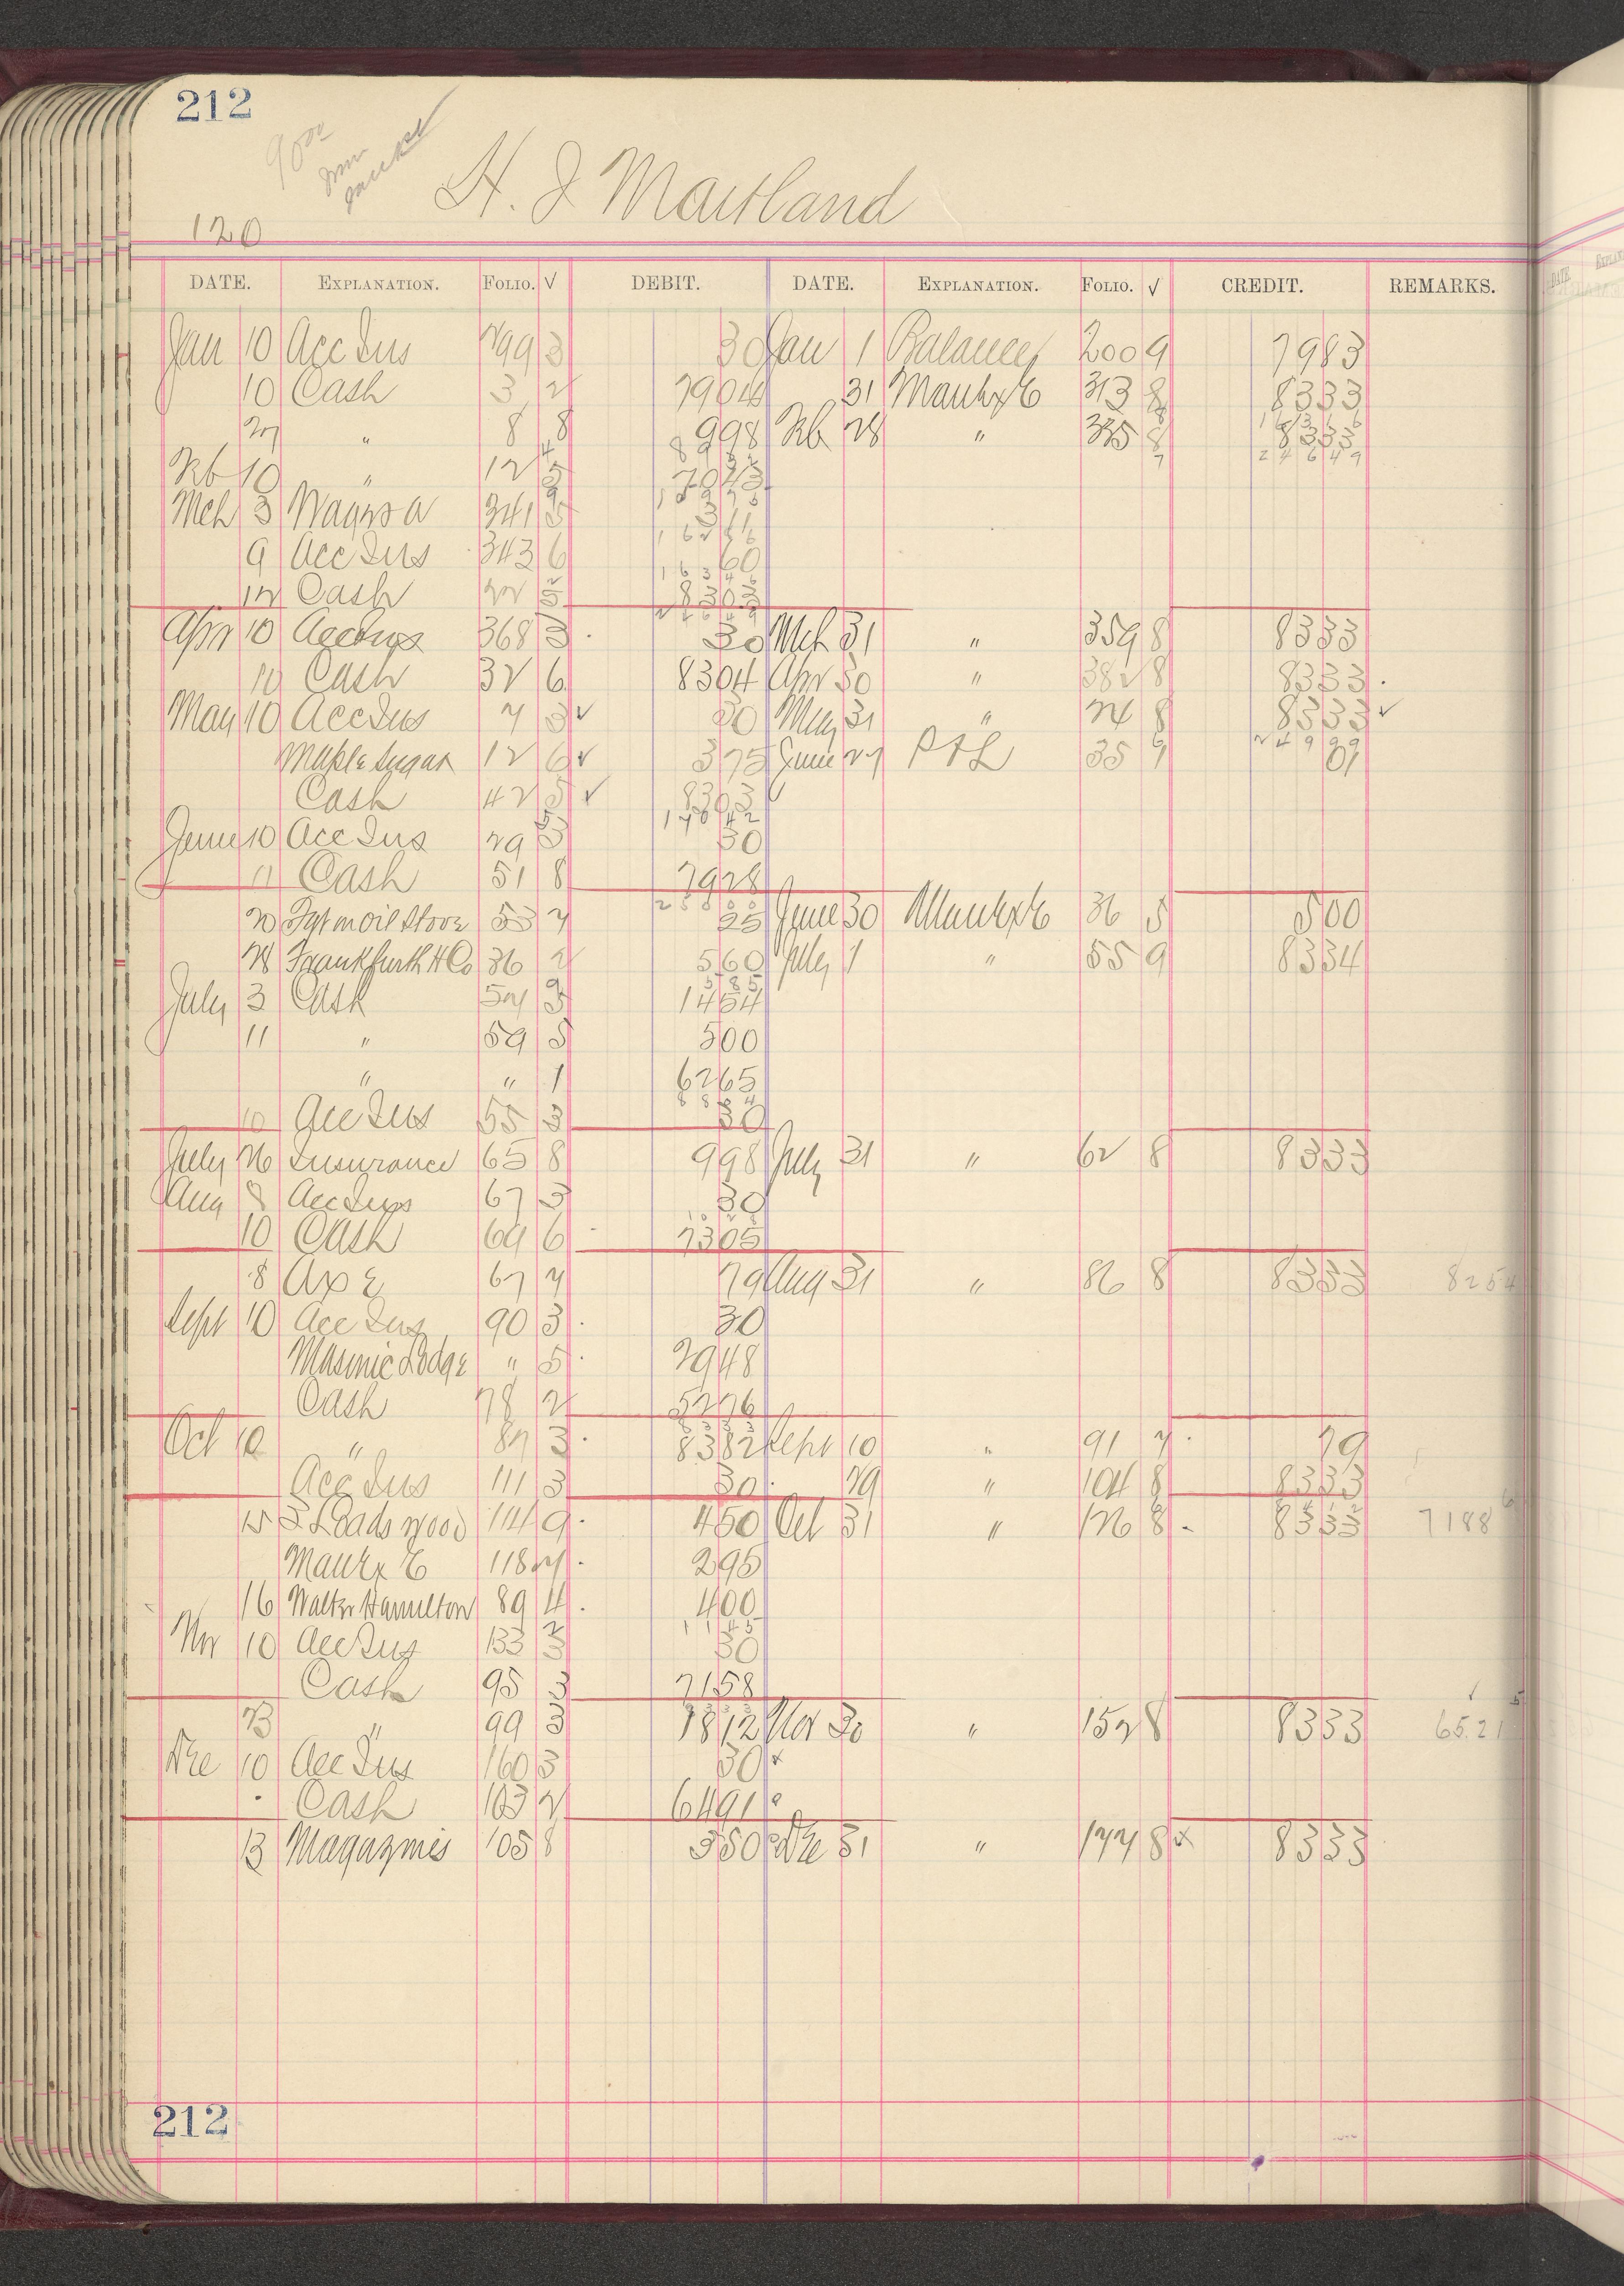 212
120
H. J Maitland
DATE. EXPLANATION. FOLIO. √ DEBIT. DATE. EXPLANATION. FOLIO. √ CREDIT. REMARKS.
Jan 10 Acc Ins 299 3 30 Jan 1 Balance 200 9 7983
10 Cash 3 2 7904 31 Manhx E 313 8 8333
27 " 8 8 998 Feb 28 " 335 8 8333
Feb 10 " 12 5
Mch 3 341
9 Acc Ins 343 6 60
12 Cash 22 5 8303
Apr 10 Acc Ins 368 3 30 Mch 31 " 359 8 8333
10 Cash 32 6 8304 Apr 30 " 382 8 8333
May 10 Acc Ins 7 3 √ 30 May 31 " 24 8 8333 √
Maple Sugar 12 6 √ 375 June 27 P & L 35 9 01
Cash 42 5 √ 8303
June 10 Acc Ins 29 3 30
11 Cash 51 8 7928
20 oil Stove 53 7 25 June 30 Manhx E 36 5 500
28 Frankfurth H Co 36 2 560 July 1 " 55 9 8334
July 3 Cash 57 3 1454
11 " 59 5 500
" " 1 6265
10 Acc Ins 55 3 30
July 26 Insurance 65 8 998 July 31 " 62 8 8333
Aug 8 Acc Ins 67 3 30
10 Cash 69 6 7305
8 Axe 67 7 79 Aug 31 " 86 8 8333 8254
Sept 10 Acc Ins 90 3 30
Masonic Lodge " 5 2948
Cash 78 2 5276
Oct 10 " 87 3 8382 Sept 10 " 91 7 79
Acc Ins 111 3 30 29 " 104 8 8333
15 Loads wood 114 9 450 Oct 31 " 126 8 8333 7188
Manhx E 118 7 295
16 Walter Hamilton 89 4 400
Nov 10 Acc Ins 133 3 30
Cash 95 3 7158
23 " 99 3 1812 Nov 30 " 152 8 8333 6521
Dec 10 Acc Ins 160 3 30
Cash 103 2 6491
13 Magazines 105 8 350 Dec 31 " 177 8 8333
212